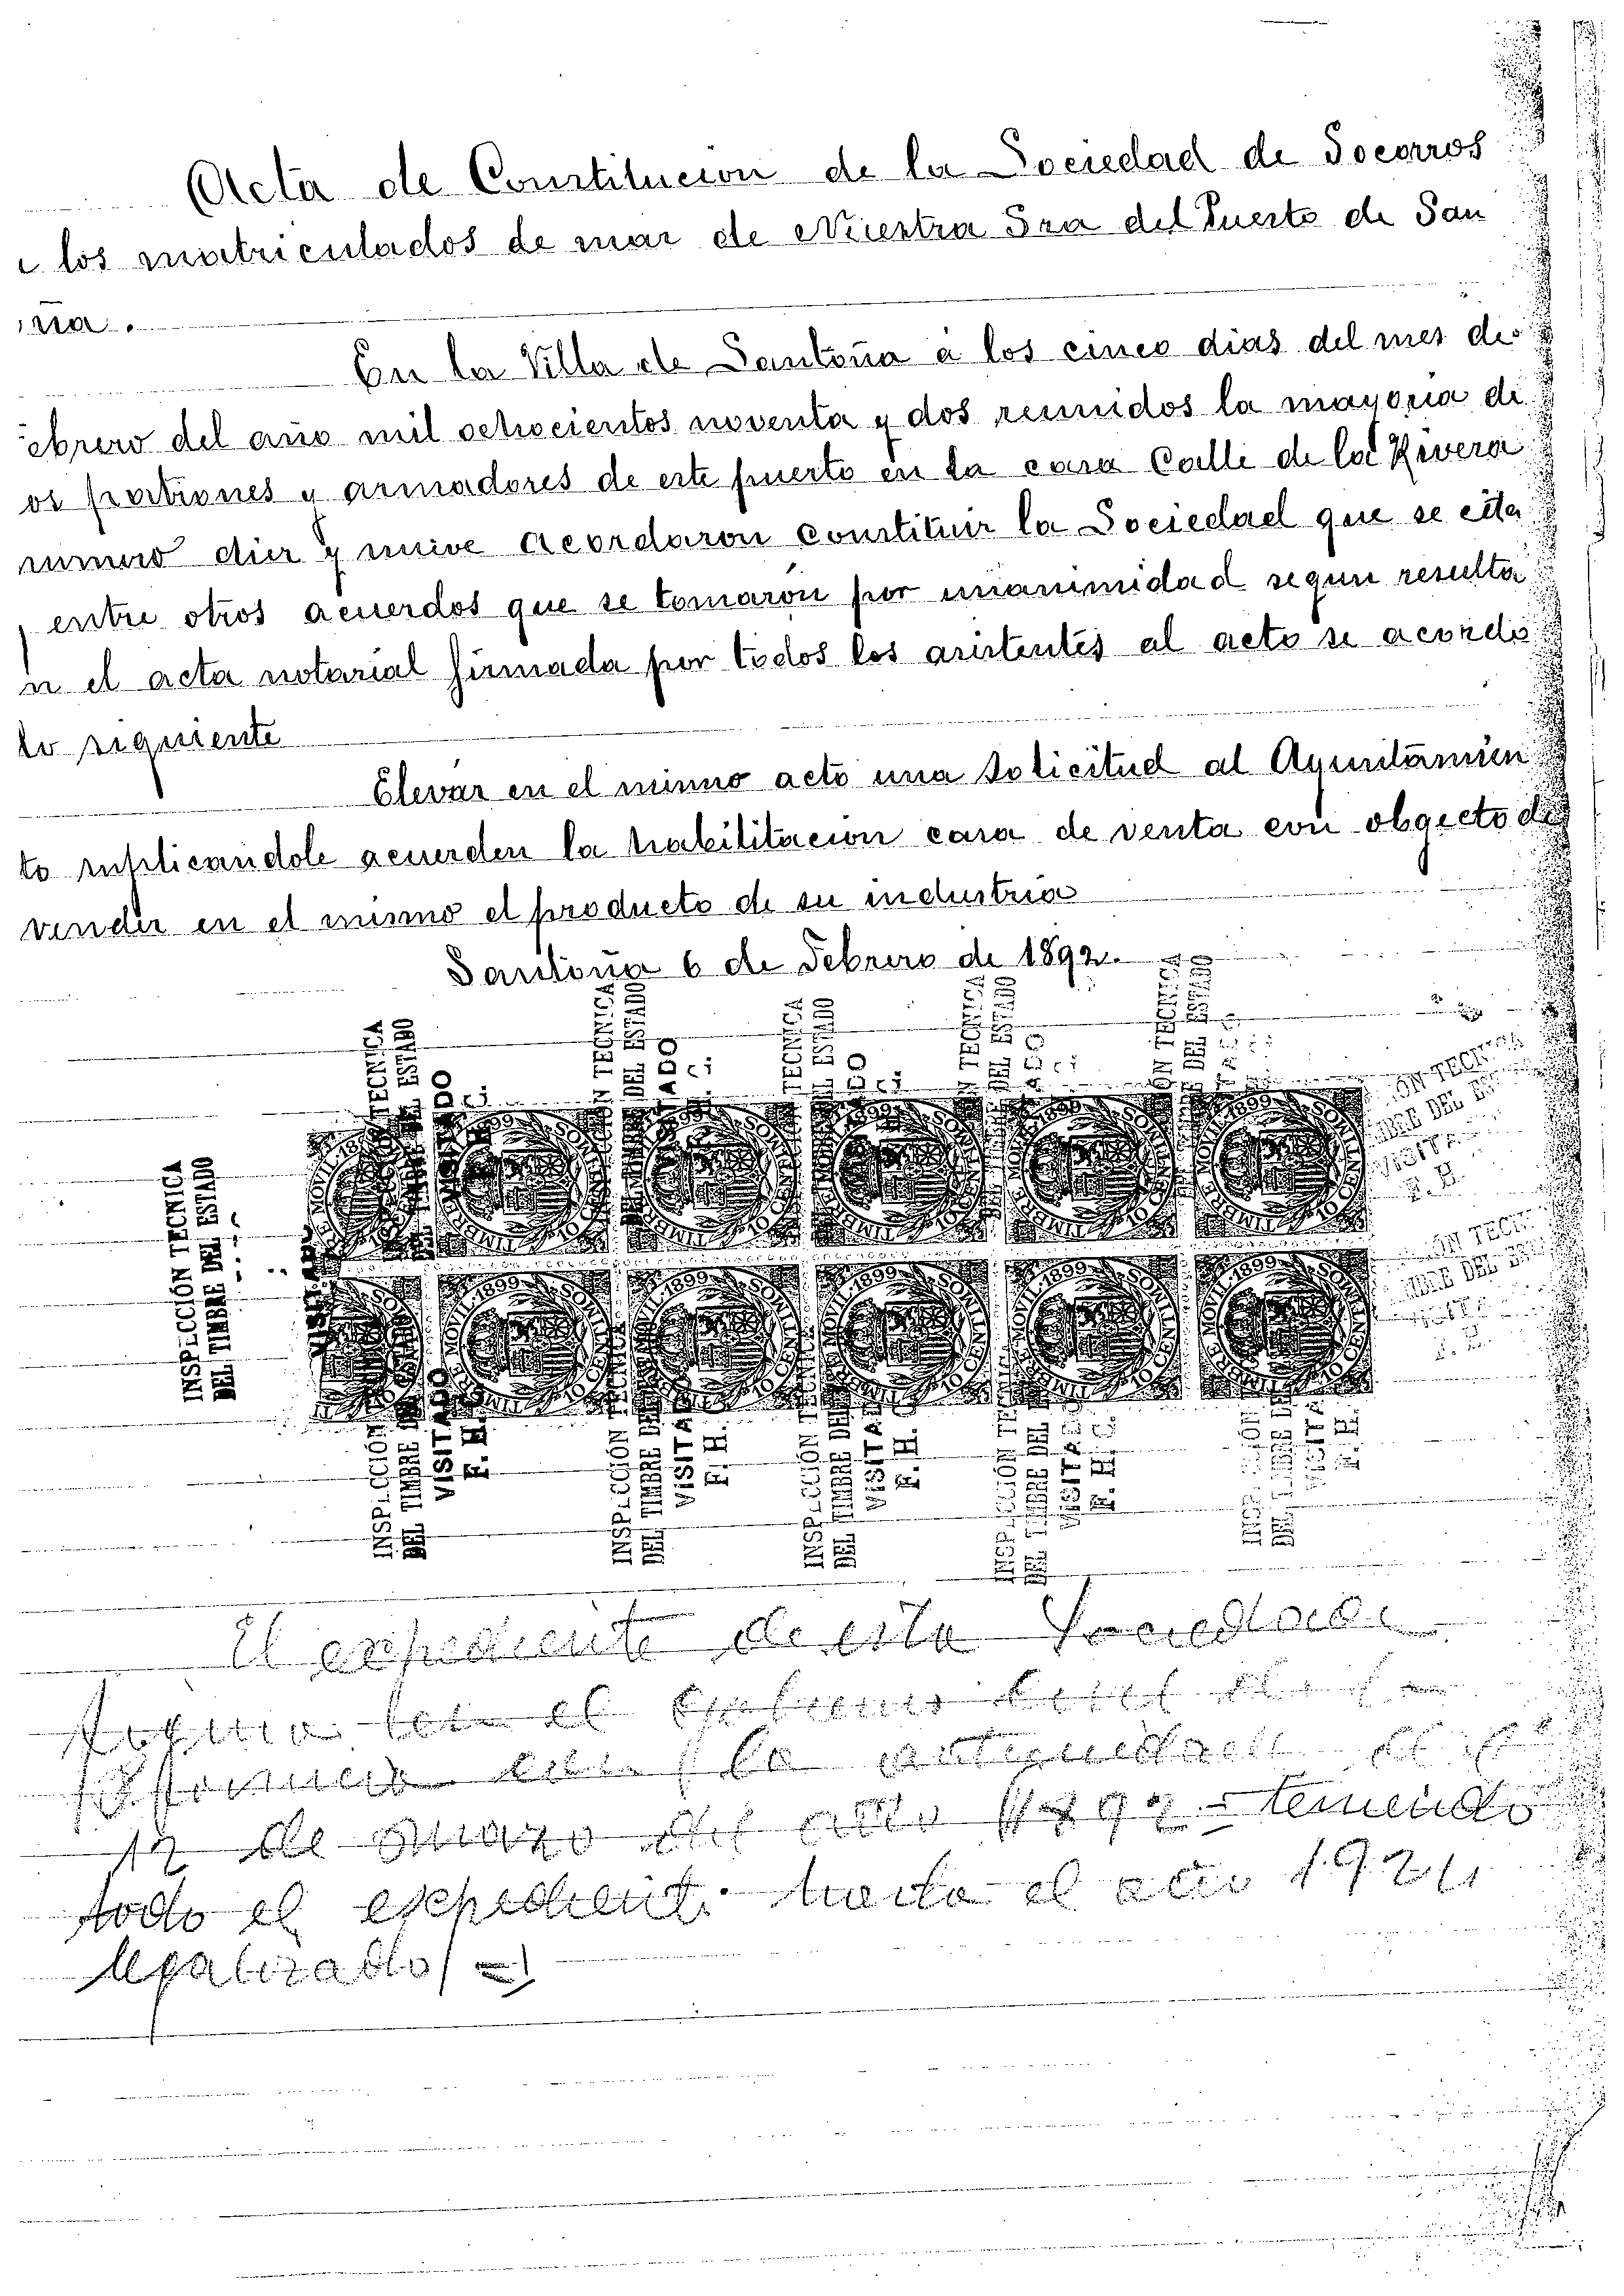 Acta de Constitucion de la Sociedad de Socorros
los matriculados de mar de Nuestra Sra del Puerto de San
ña.
En la Villa de Santoña á los cinco dias del mes de
ebrero del año mil ochocientos noventa y dos reunidos la mayoria de
os patrones y armadores de este puerto en la casa Calle de la Rivera
numero diez y nueve acordaron constituir la Sociedad que se cita
y entre otros acuerdos que se tomaron por unanimidad segun resulta
n el acta notarial firmada por todos los asistentes al acto se acordo
lo siguiente
Elevar en el mismo acto una solicitud al Ayuntamien
to suplicandole acuerden la habilitacion casa de venta con obgecto de
vender en el mismo el producto de su industria
Santoña 6 de Febrero de 1892.
INSPECCIÓN TECNICA
DEL TIMBRE DEL ESTADO
VISITADO
F. H.
TIMBRE MOVIL·1899
10 CENTIMOS
El expediente de esta Sociedad
el
la antiguedad
12 de Marzo del año 1892 = teniendo
todo el expediente hasta el año 1924
legalizado =